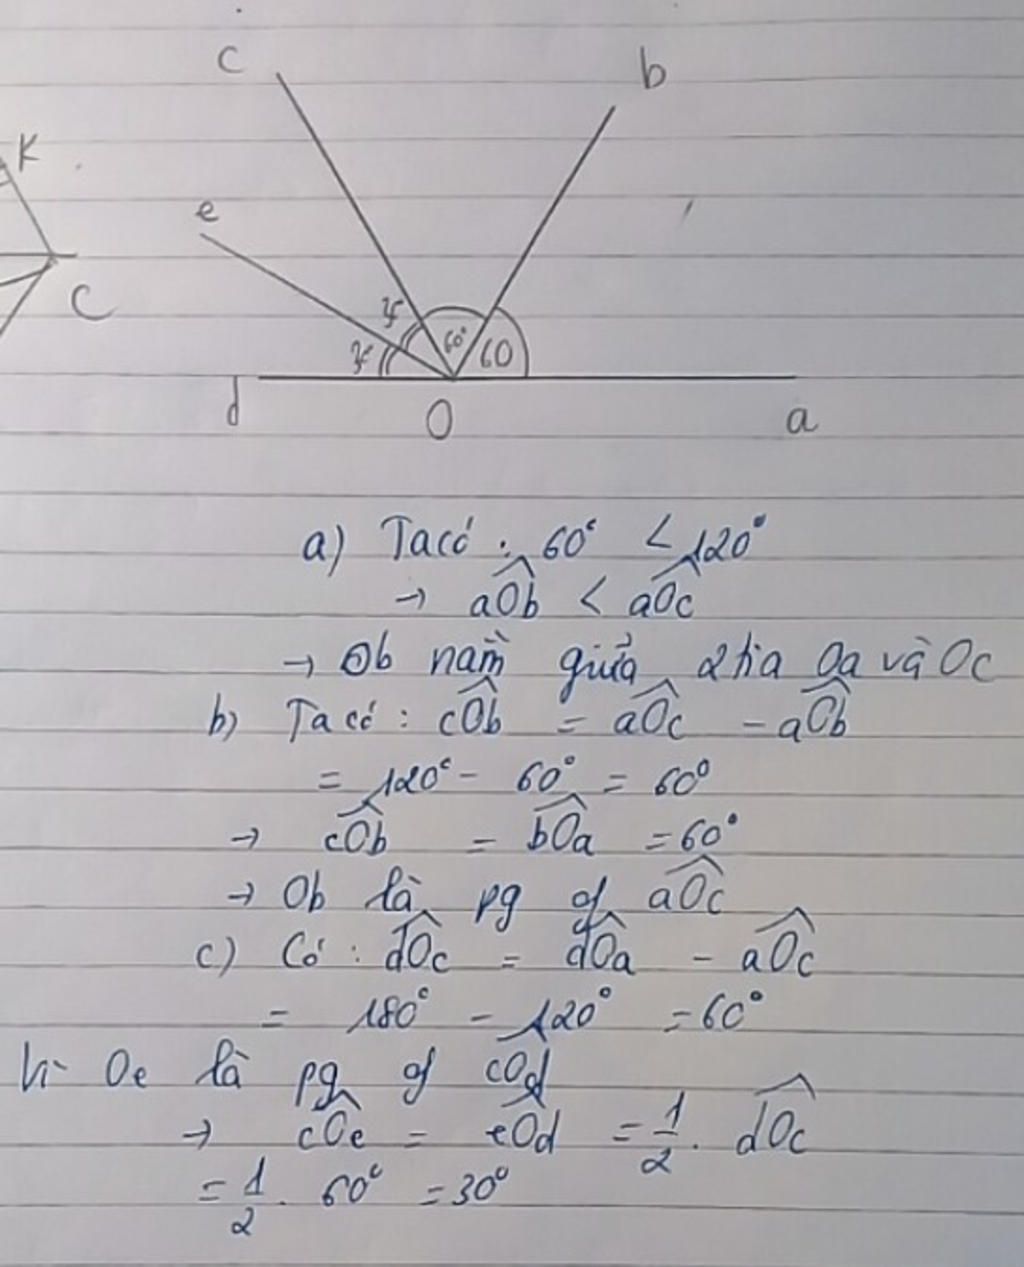 c
b
K
e
C
60°
60
d
O
a
a) Ta có : 60° < 120°
→ aÔb < aÔc
→ Ob nằm giữa 2 tia Oa và Oc
b) Ta có : cÔb = aÔc - aÔb
= 120° - 60° = 60°
→ cÔb = bÔa = 60°
→ Ob là pg of aÔc
c) Có : dÔc = dÔa - aÔc
= 180° - 120° = 60°
Vì Oe là pg of cÔd
→ cÔe = eÔd = 1/2 . dÔc
= 1/2 . 60° = 30°